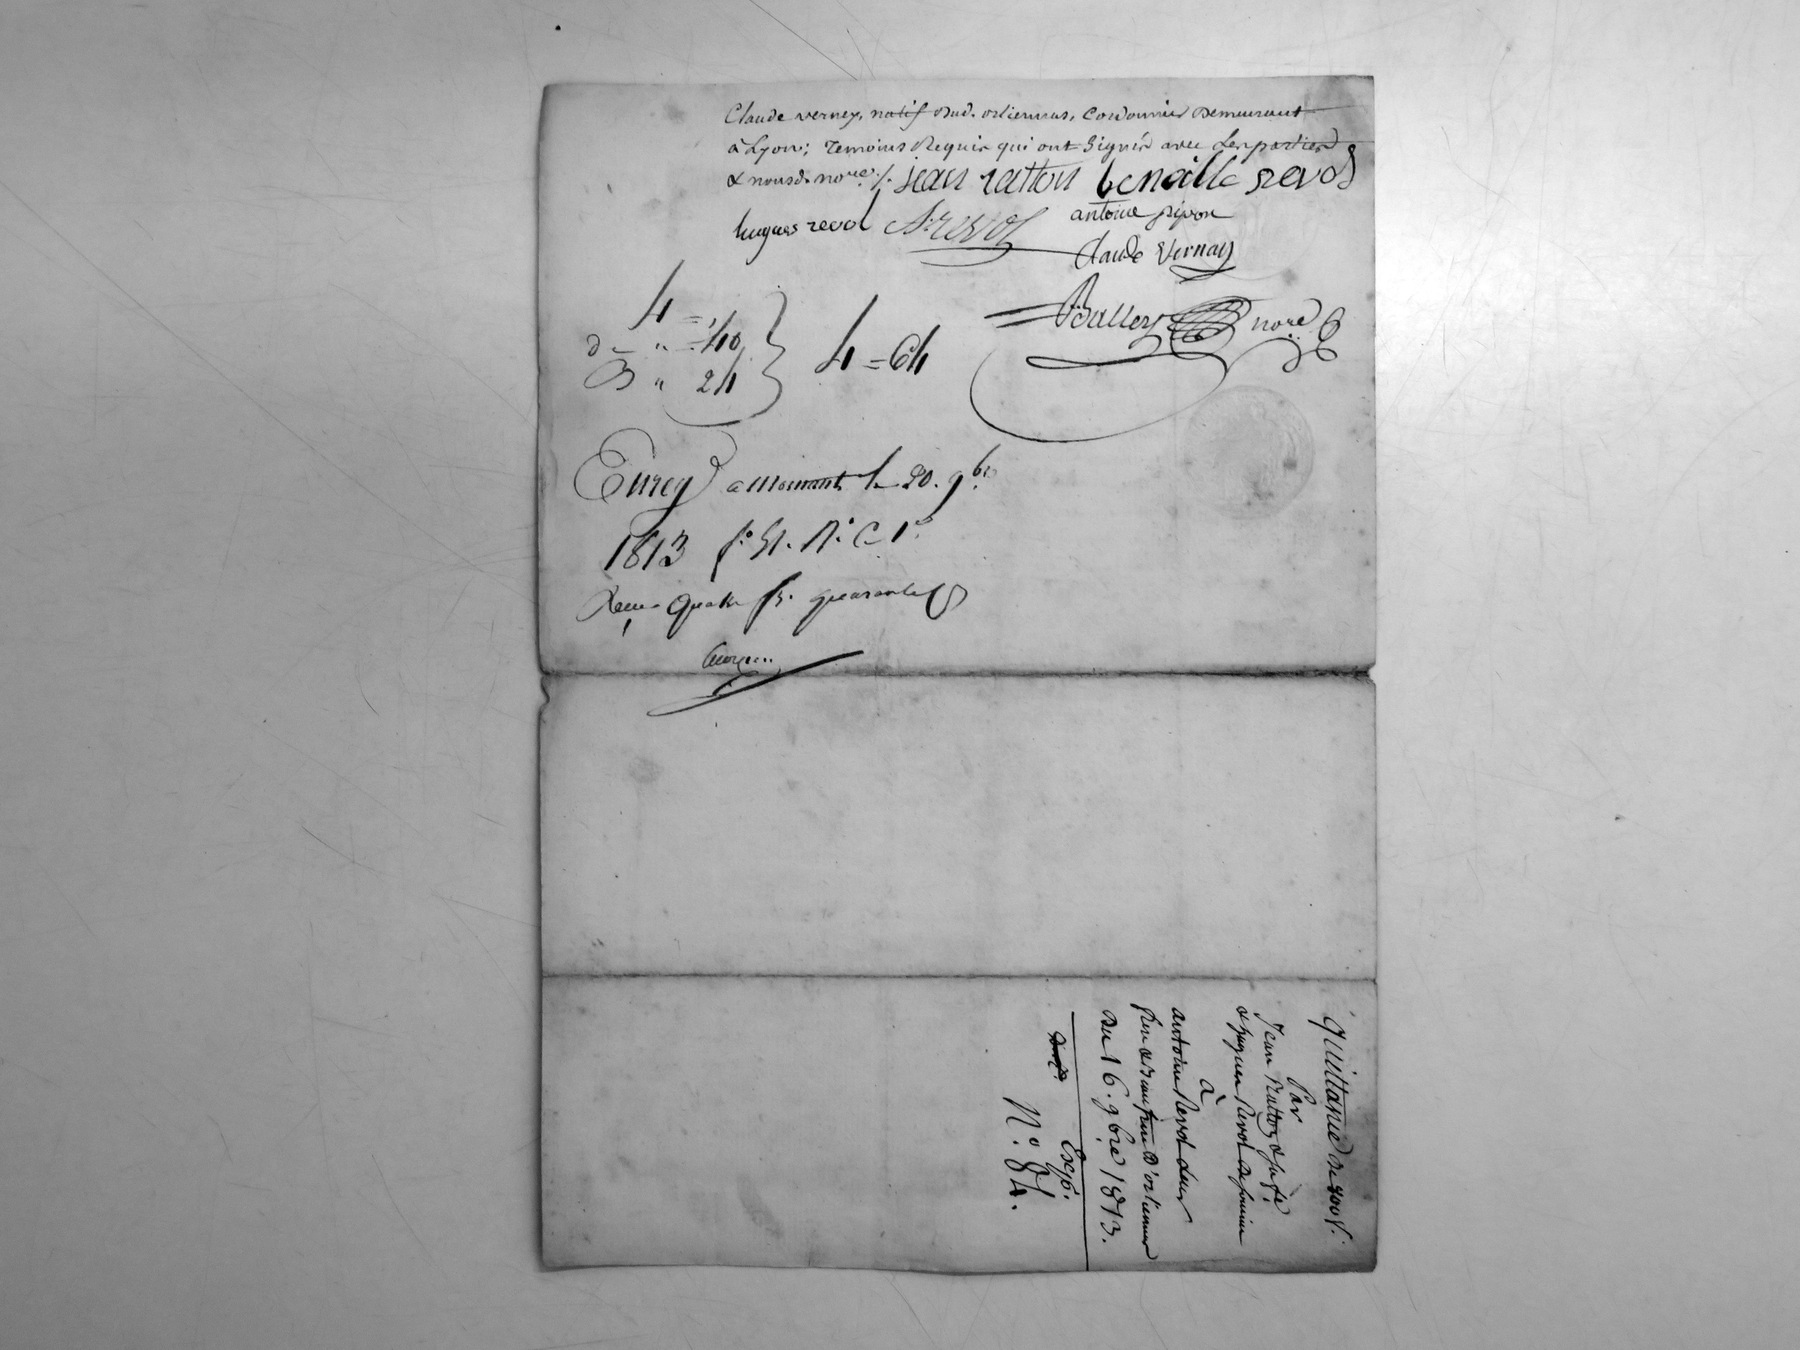 Claude verney, natif dud. orliennas, Cordonnier demeurant
à Lyon; temoins Requis qui ont Signés avec les parties
& nousd. nore ./. jean ratton benoitte revol
hugues revol A. revol antoine pipon
Claude Vernay
4 =
d = " = 40
" 24
4 = 64
nore
Enreg a mornant le 20. 9bre
1813 fo 51. Ro C 1o
Reçu quatre fr. quarante
Quittance de 400 f.
Par
Jean Ratton & sa fe
& hugues Revol
à
antoine Revol leur
d'orliennas
du 16. 9bre 1813.
Exp.
No. 84.